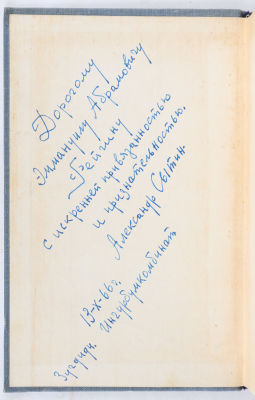 Дорогому
Эммануилу Абрамовичу
Фейгину
с искренней привязанностью
и признательностью.
Александр Сытин.
13-X-66г.
Зугдиди. Ингурбумкомбинат